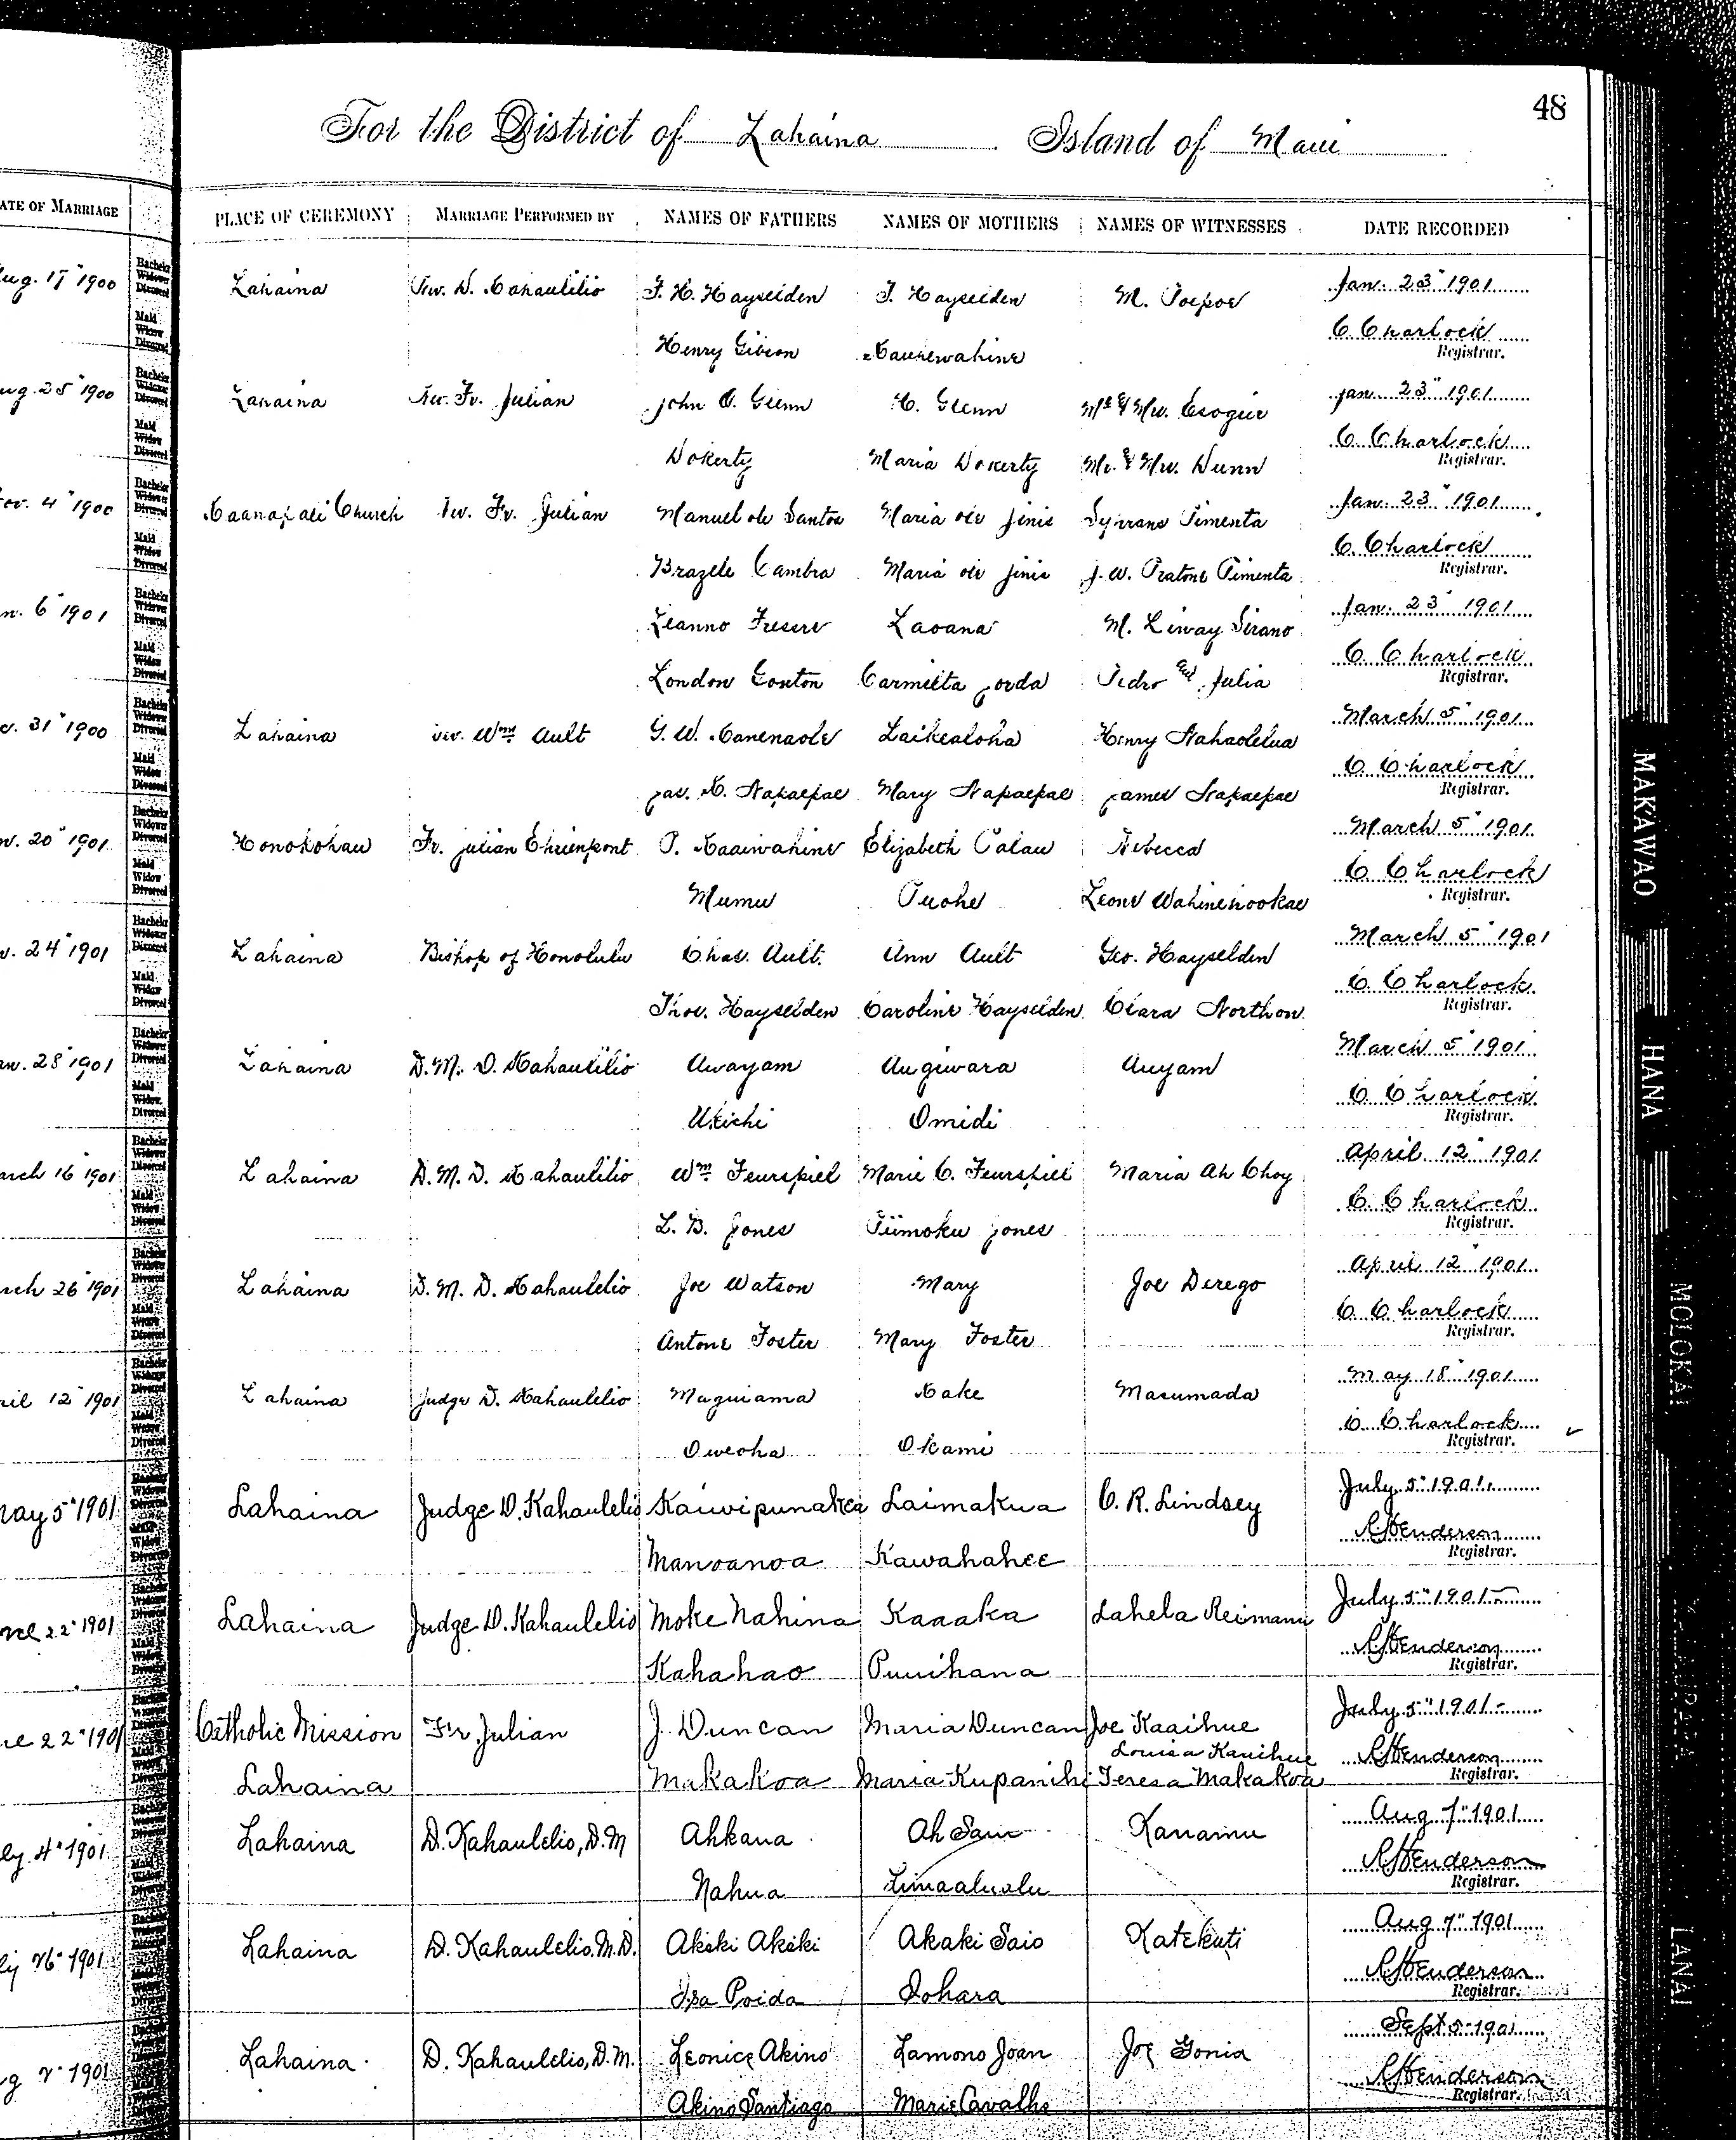 48
For the District of Lahaina Island of Maui
ATE OF MARRIAGE PLACE OF CEREMONY MARRIAGE PERFORMED BY NAMES OF FATHERS NAMES OF MOTHERS NAMES OF WITNESSES DATE RECORDED
ug. 17" 1900 Lahaina Rev. D. Kahaulilio F. H. Hayselden T. Hayselden M. Poepoe Jan. 23" 1901
Henry Gibson Kauhewahine C. Charlock
Registrar.
ug. 25" 1900 Lahaina Rev. Fr. Julian John C. Glenn H. Glenn Mr & Mrs. Jan 23" 1901
Dokerty Maria Dokerty Mr. & Mrs. Dunn C Charlock
Registrar.
ov. 4" 1900 Kaanapali Church Rev. Fr. Julian Manuel de Santos Maria de Jinis Pimenta Jan. 23" 1901
Cambra Maria de Jinis J. W. Pimenta C. Charlock
Registrar.
n. 6" 1901 Jan. 23" 1901
London Carmilta Pedro and Julia C Charlock
Registrar.
c. 31" 1900 Lahaina Rev. Wm Ault G. W. Kanenaole Laikealoha Henry Nahaolelua March 5" 1901
Jas. K. Napaepae Mary Napaepae James Napaepae C Charlock
Registrar.
n. 20" 1901 Honokohau Fr. Julian P. Kaaiwahine Elizabeth Palau Rebecca March 5" 1901
Mumu Puohe Leone C Charlock
Registrar.
n. 24" 1901 Lahaina Bishop of Honolulu Chas. Ault. Ann Ault Geo. Hayselden March 5" 1901
Thos. Hayselden Caroline Hayselden Clara Northon C Charlock
Registrar.
an. 28" 1901 Lahaina D. M. D. Kahaulilio Awayam Augiwara Auyam March 5" 1901
Ukichi Omidi C Charlock
Registrar.
arch 16" 1901 Lahaina D. M. D. Kahaulilio Wm Feurspiel Marie C. Feurspiel Maria Ah Choy April 12" 1901
L. B. Jones Piimoku Jones C Charlock
Registrar.
rch 26" 1901 Lahaina D. M. D. Kahaulelio Joe Watson Mary Joe Derego April 12" 1901
Antone Foster Mary Foster C Charlock
Registrar.
ril 12" 1901 Lahaina Judge D. Kahaulelio Maguiama Kake Masumada May 18" 1901
Oweoha Okami C Charlock
Registrar.
May 5" 1901 Lahaina Judge D. Kahaulelio Kaiwipunakea Laimakua C. R. Lindsey July 5" 1901
Manoanoa Kawahahee Henderson
Registrar.
ne 22" 1901 Lahaina Judge D. Kahaulelio Moke Nahina Kaaaka Lahela Reimann July 5" 1901
Kahahao Puuihana Henderson
Registrar.
ne 22" 1901 Catholic Mission Fr Julian J. Duncan Maria Duncan Joe Kaaihue July 5" 1901
Louisa Kaaihue Henderson
Lahaina Makakoa Maria Kupanihi Teresa Makakoa Registrar.
ly 4" 1901 Lahaina D. Kahaulelio, D.M Ahkana Ah Sam Kanamu Aug 7" 1901
Nahua Limaalualu Henderson
Registrar.
ly 26" 1901 Lahaina D. Kahaulelio. M.D. Akaki Akaki Akaki Saio Katekuti Aug 7" 1901
Isa Poida Sohara Henderson
Registrar.
g 2" 1901 Lahaina D. Kahaulelio, D.M. Leonice Akino Lamono Joan Joe Gonia Sept 5" 1901
Akino Santiago Marie Cavalho Henderson
Registrar.
MAKAWAO
HANA
MOLOKAI
LANAI